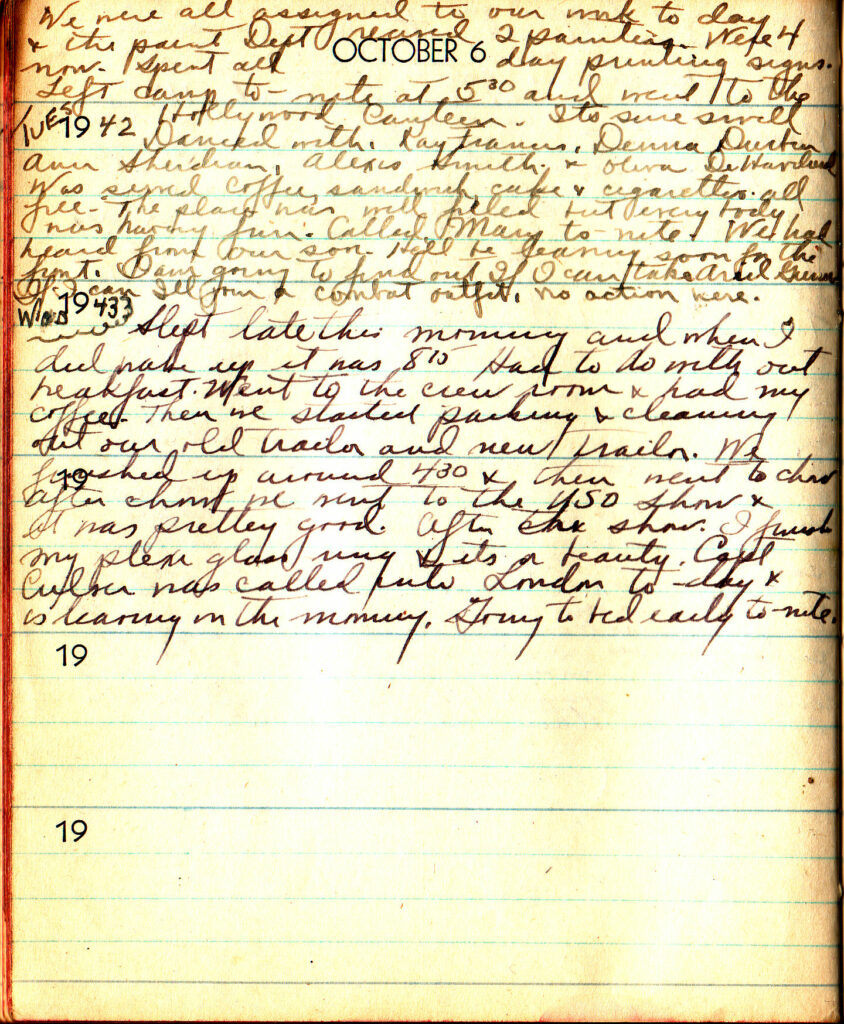 We were all assigned to our work to day
& the paint Dept 2 painters. Were 4
OCTOBER 6
now. Spent all day printing signs.
Left camp to-nite at 5 30 and went to the
TUES 1942 Hollywood Canteen. Its sure swell
Danced with, Kay Francis, Deanna Durbin
Ann Sheridan, Alexis Smith. & Oliva DeHaviland
Was served coffee sandwich cake & cigarettes. all
free. The place was well filled but every body
was having fun. Called Mary to-nite. We had
heard from our son. Hell be leaving soon for the
front. I am going to find out if I can take Aerial Gunner
If I can Ill join a combat outfit, no action here.
WED 1943 Slept late this morning and when I
did wake up it was 8 15 Had to do with out
breakfast. Went to the crew room & had my
coffee. Then we started packing & cleaning
out our old trailor and new trailor. We
19 finished up around 430 & then went to chow
after chow we went to the USO show &
it was pretty good. After the show. I finish
my plexi glass ring & its a beauty. Capt
Culver was called into London to-day &
is leaving in the morning. Going to bed early to-nite.
19
19